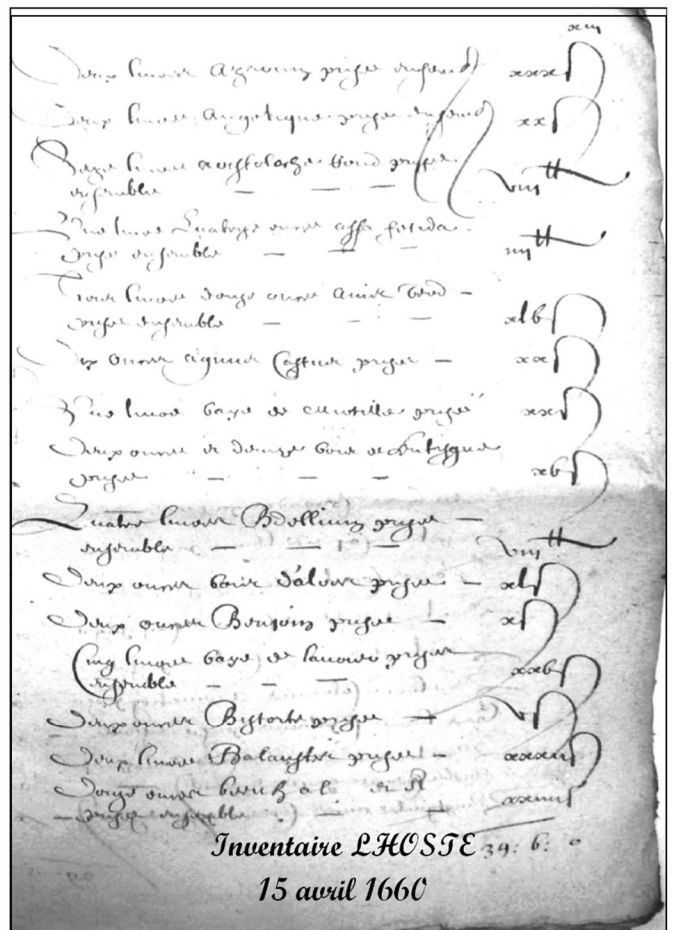 xiii
Deux livres Agarium prisés ensemble xxx s
Deux livres Angelique prisée ensemble xx s
livres aristoloche rond prisée
ensemble — — — viii tt
Une livre quatorze onces assa fetida
prisée ensemble — — — iiii tt
Trois livres douze onces anis verd —
prisés ensemble — — — xlv s
onces agnus Castus prisés — xx s
Une livre baye de prisée xx s
Deux onces et demye bois de
prisées — — — xv s
Quatre livres Bdellium prisées —
ensemble — — — viii tt
Deux onces bois d'aloes prisées — xl s
Deux onces Benjoin prisées — x s
Cinq livres baye de laurier prisées
ensemble — — — xxv s
Deux onces Bistorte prisées — v s
Deux livres Balaustes prisées — s
Douze onces
prisées ensemble — — s
34: 6: 0
Inventaire LHOSTE
15 avril 1660